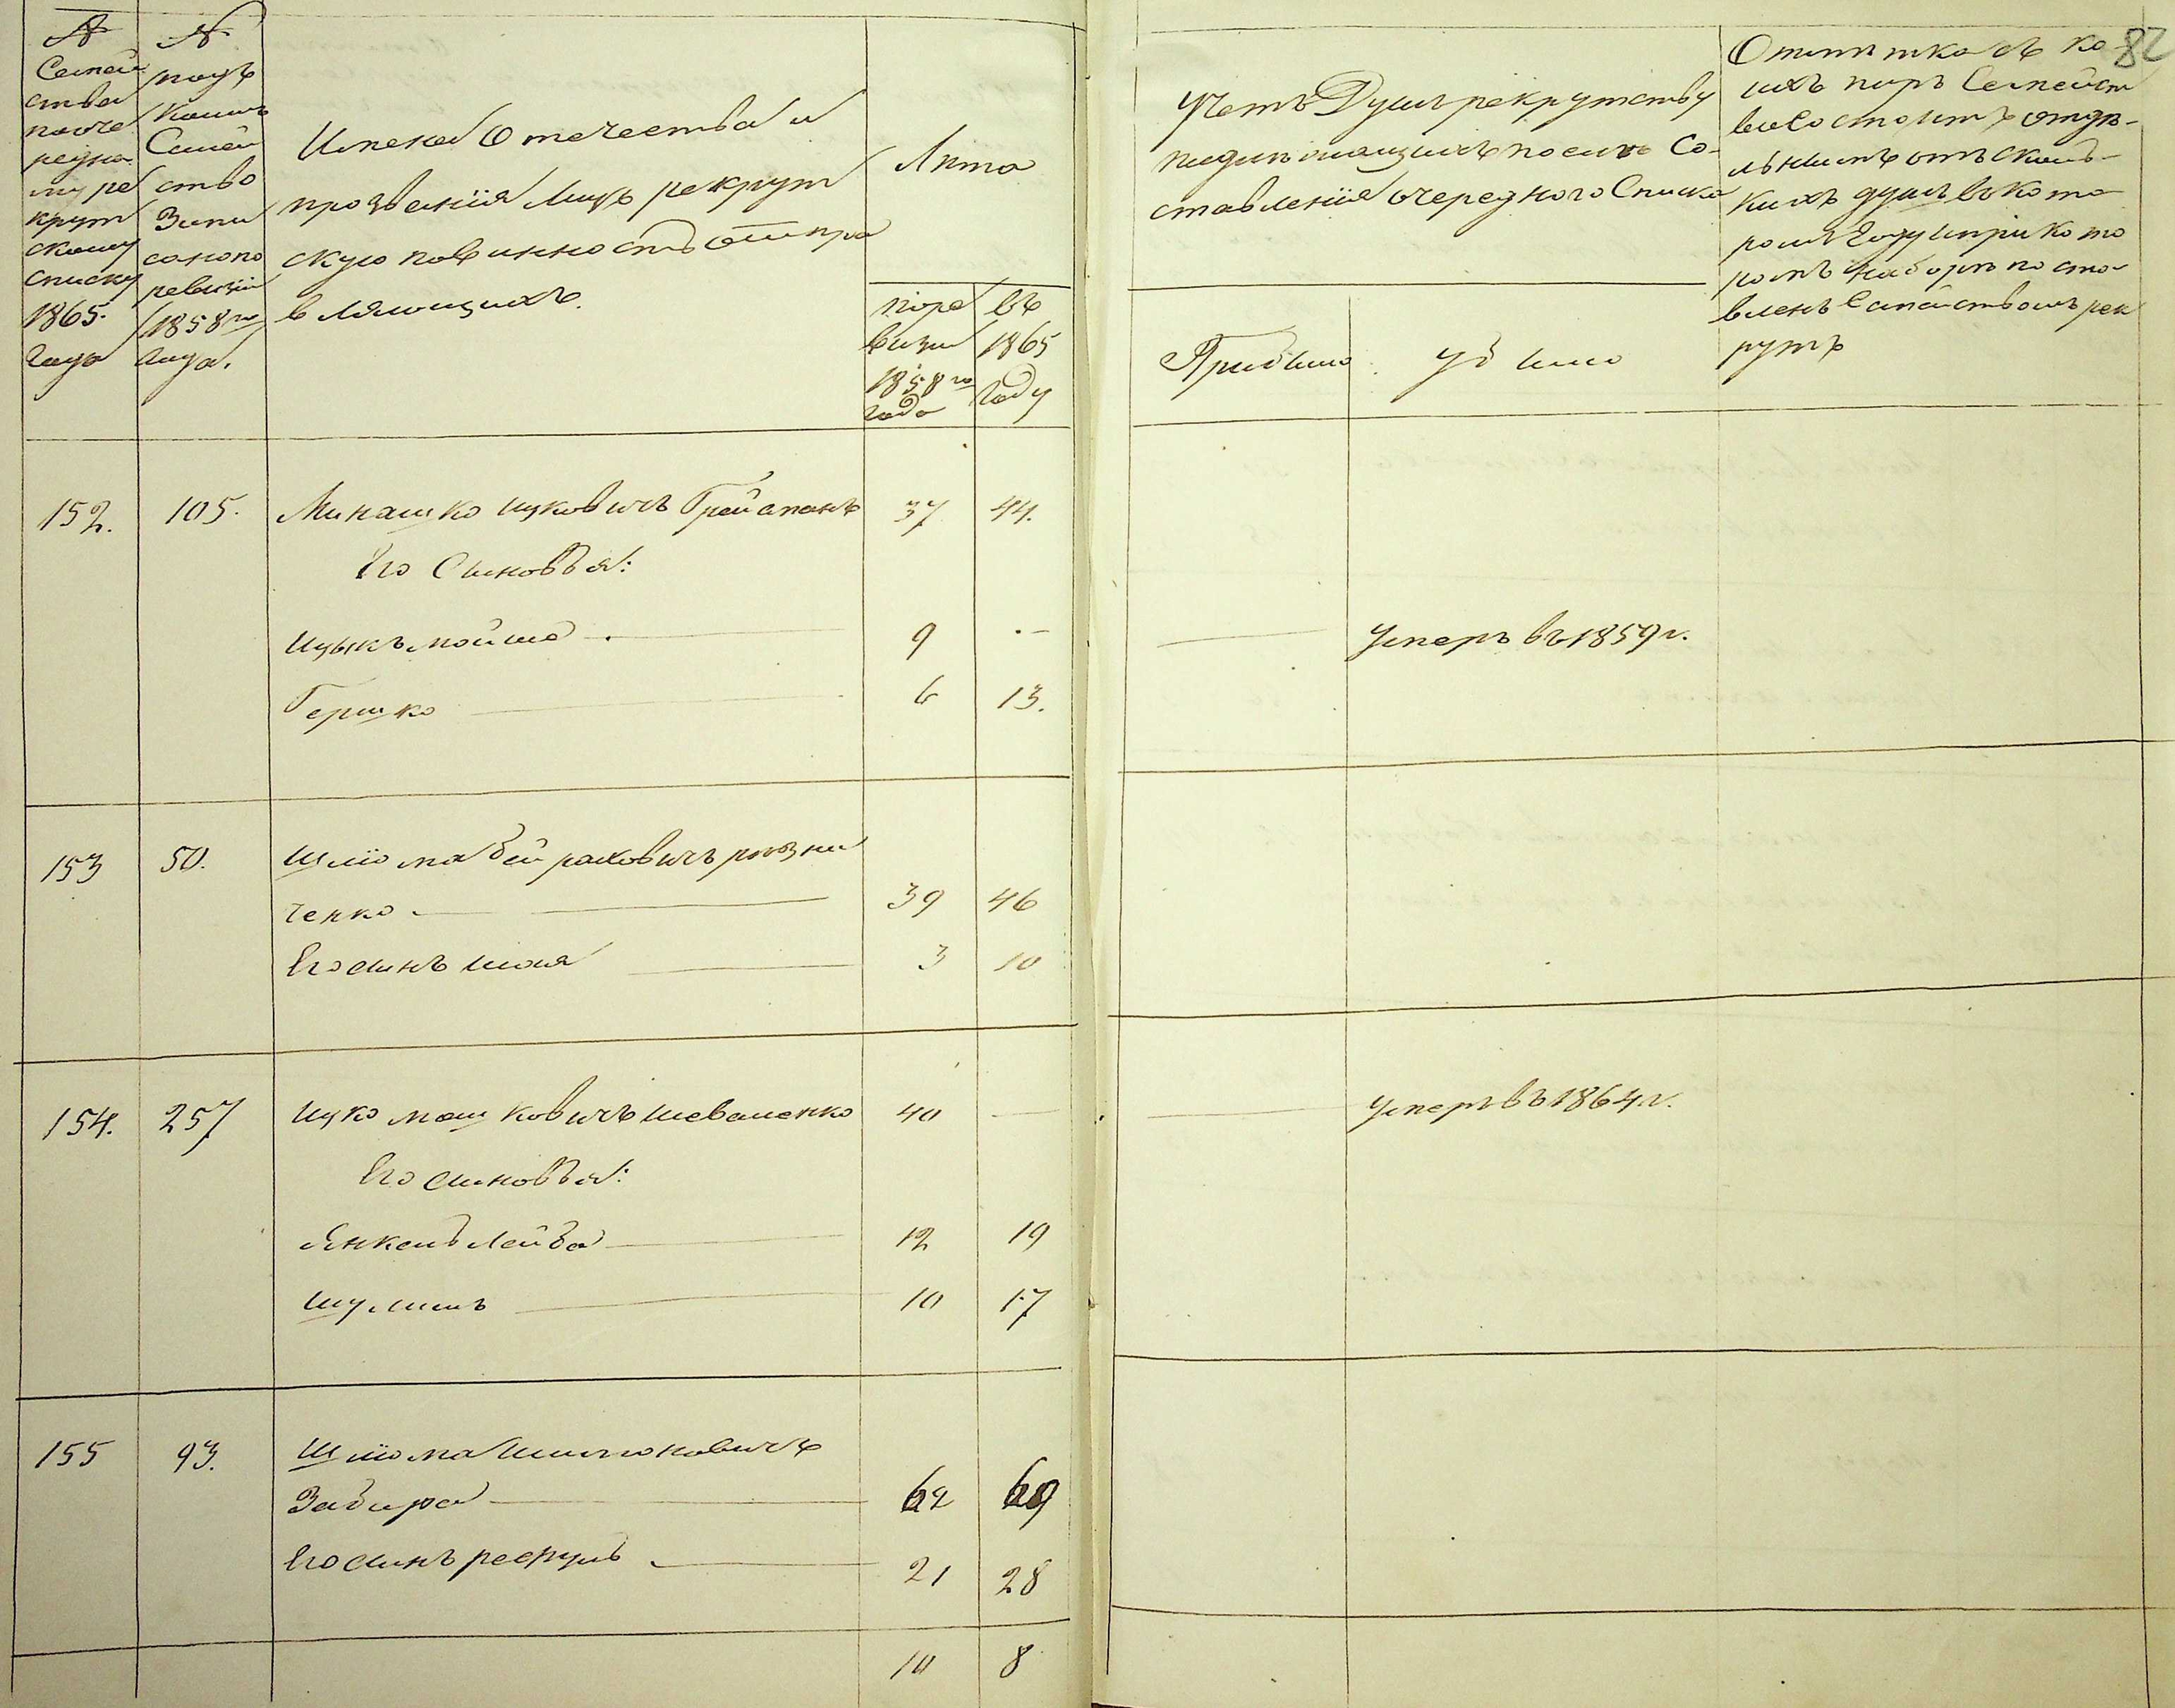 82
№
Семей
ства
по оче
редно
му ре
крут
скому
списку
1865
года
№
подъ
коимъ
Семей
ство
Запи
сано по
ревизіи
1858 го
года.
Имена Отечества и
прозванія лицъ рекрут
скую повинность отпра
вляющихъ.
Лѣта
по ре
визіи
1858 го
года
въ
1865
году
Учетъ Душъ рекрутству
подлежащихъ по сихъ Со-
ставленія очереднаго Списка
Прибыло
убыло
Отмѣтка съ ко-
ихъ поръ Семейст
во Состоитъ отдѣ-
льнымъ отъ сколь-
кихъ душъ въ кото
ромъ году и при кото
ромъ наборѣ поста
вленъ Семействомъ рек
рутъ
152. 105. Минашко Ицковичъ Грейсманъ 37 44.
Его Сыновья:
Ицыкъ мойша 9 - Умеръ въ 1859 г.
Гершко 6 13.
153 50. Шліома бейраховичъ рѣзни
ченко 39 46
Его сынъ шая 3 10
154. 257 Ицко мошковичъ шеваченко 40 - Умеръ въ 1864 г.
Его сыновья:
Янкель лейба 12 19
шулимъ 10 17
155 93. Шліома шимоновичъ
Забара 62 69
Его сынъ рефуль 21 28
10 8